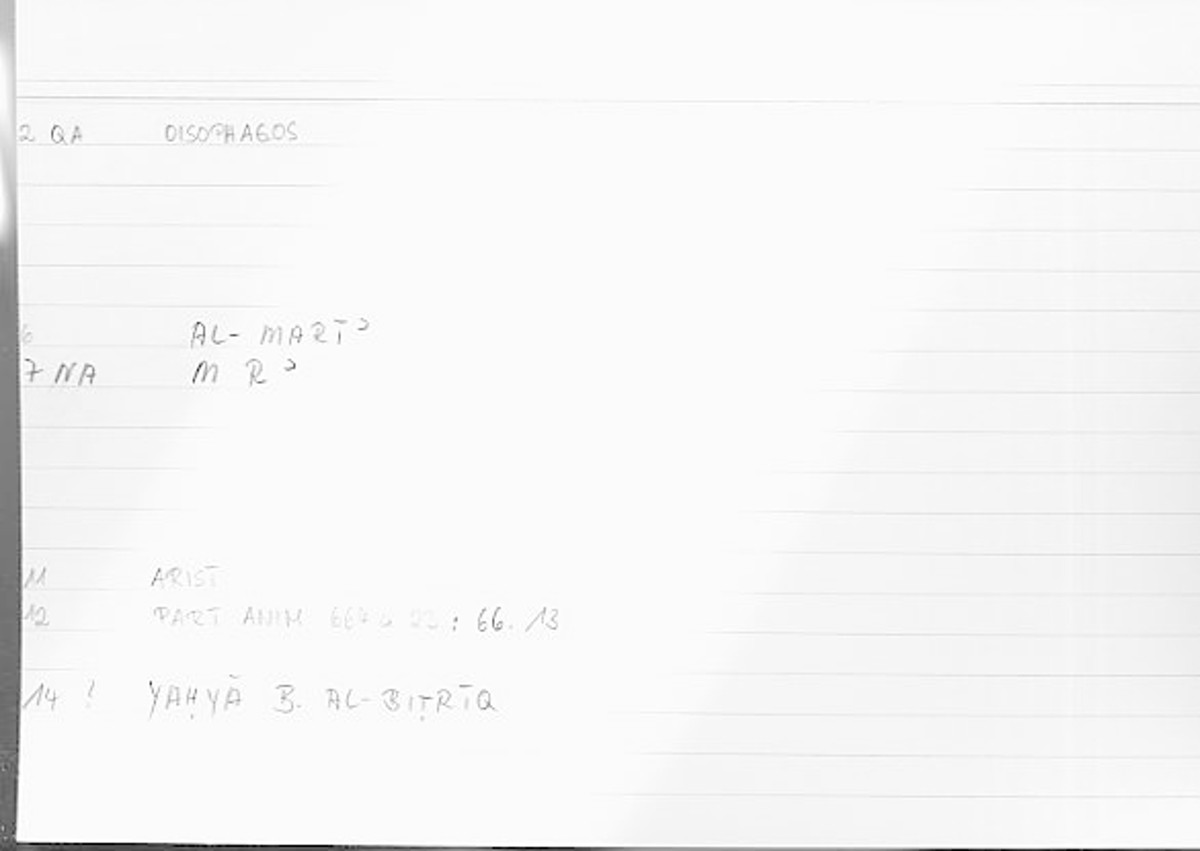 2 QA OISOPHAGOS
6 AL-MARĪʾ
7 NA M R ʾ
11 ARIST
12 PART ANIM 664 : 66.13
14 ! YAḤYĀ B. AL-BIṬRĪQ